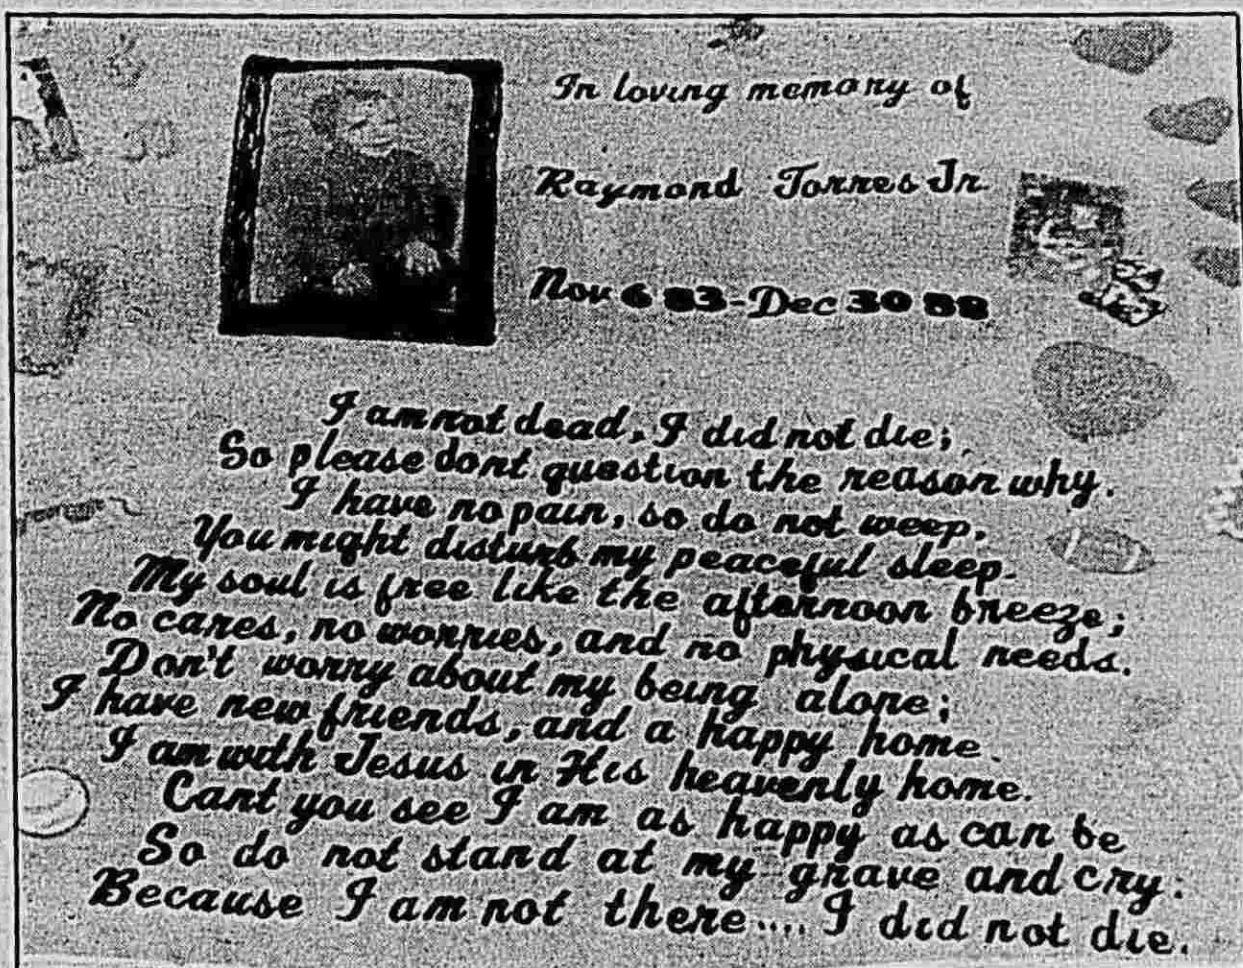 In loving memory of
Raymond Torres Jr.
Nov 6 83-Dec 30 88
I am not dead, I did not die;
So please dont question the reason why.
I have no pain, so do not weep.
You might disturb my peaceful sleep.
My soul is free like the afternoon breeze;
No cares, no worries, and no physical needs.
Don't worry about my being alone;
I have new friends, and a happy home.
I am with Jesus in His heavenly home.
Cant you see I am as happy as can be
So do not stand at my grave and cry:
Because I am not there.... I did not die.